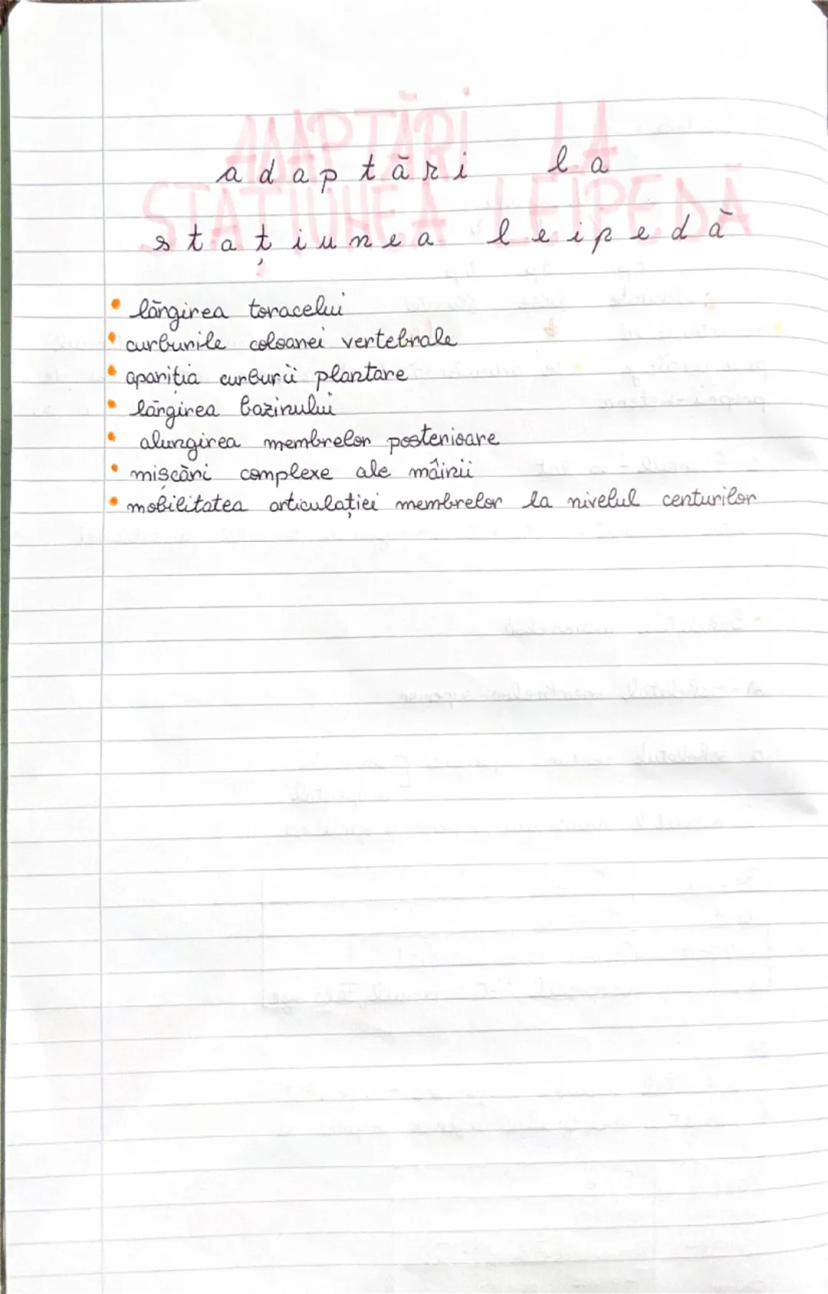 ADAPTĂRI LA
adaptări la
STAȚIUNEA LEIPEDĂ
stațiunea leipedă
• lărgirea toracelui
• curburile coloanei vertebrale
• apariția curburii plantare
• lărgirea bazinului
• alungirea membrelor posterioare
• mișcări complexe ale mâinii
• mobilitatea articulației membrelor la nivelul centurilor